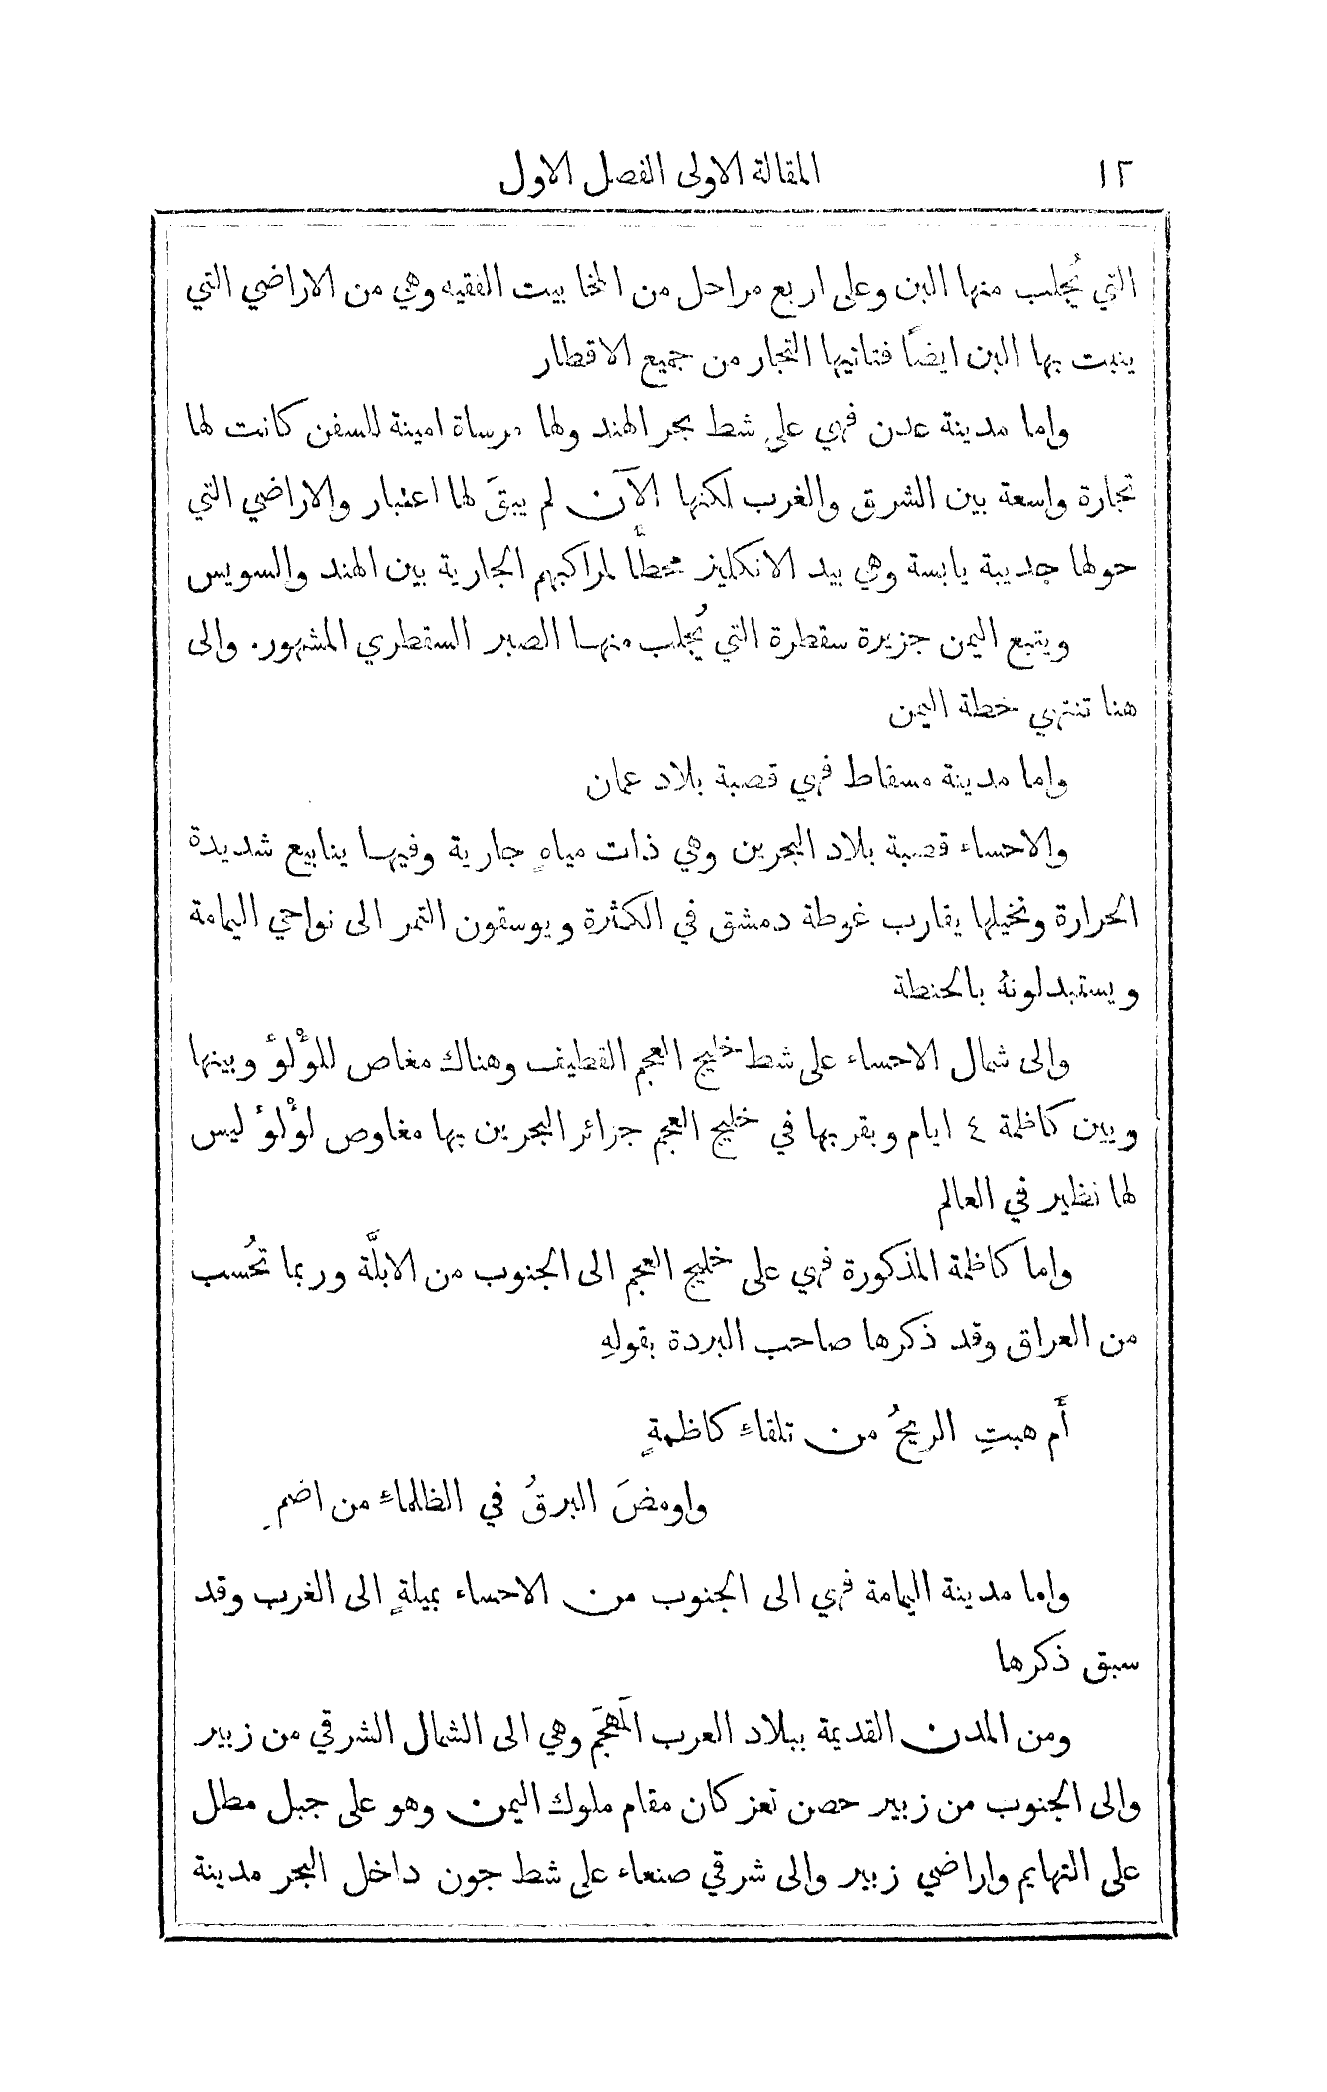 ١٢ المقالة الاولى الفصل الاول
التي يُجلب منها البن وعلى اربع مراحل من المخا بيت الفقيه وهي من الاراضي التي
ينبت بها البن ايضًا فتاتيها التجار من جميع الاقطار
واما مدينة عدن فهي على شط بحر الهند ولها مرساة امينة للسفن كانت لها
تجارة واسعة بين الشرق والغرب لكنها الآن لم يبقَ لها اعتبار والاراضي التي
حولها جديبة يابسة وهي بيد الانكليز محطًّا لمراكبهم الجارية بين الهند والسويس
ويتبع اليمن جزيرة سقطرة التي يُجلب منها الصبر السقطري المشهور. والى
هنا تنتهي خطة اليمن
واما مدينة مسقاط فهي قصبة بلاد عمان
والاحساء قصبة بلاد البحرين وهي ذات مياهٍ جارية وفيها ينابيع شديدة
الحرارة ونخيلها يقارب غوطة دمشق في الكثرة ويوسقون التمر الى نواحي اليمامة
ويستبدلونهُ بالحنطة
والى شمال الاحساء على شط خليج العجم القطيف وهناك مغاص للوْلوءِ وبينها
وبين كاظمة ٤ ايام وبقربها في خليج العجم جزائر البحرين بها مغاوص لوْلوء ليس
لها نظير في العالم
واما كاظمة المذكورة فهي على خليج العجم الى الجنوب من الابلَّة وربما تُحسب
من العراق وقد ذكرها صاحب البردة بقولهِ
أَم هبتِ الريحُ من تلقاءِ كاظمةٍ
واومضَ البرقُ في الظلماءِ من اضمِ
واما مدينة اليمامة فهي الى الجنوب من الاحساء بميلةٍ الى الغرب وقد
سبق ذكرها
ومن المدن القديمة ببلاد العرب المَهجَم وهي الى الشمال الشرقي من زبير
والى الجنوب من زبير حصن تعز كان مقام ملوك اليمن وهو على جبل مطل
على التهايم واراضي زبير والى شرقي صنعاء على شط جون داخل البحر مدينة